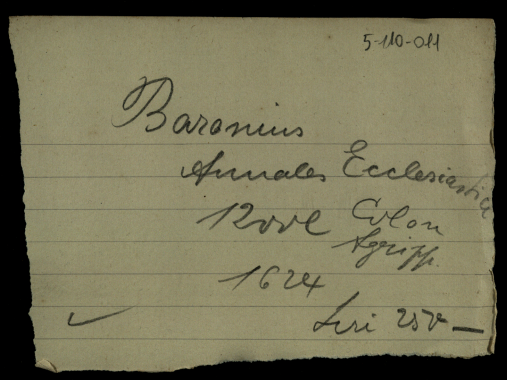 5-110-011
Baronius
Annales Ecclesiastici
12 vol Colon
Agripp.
1624
Leri 250 —